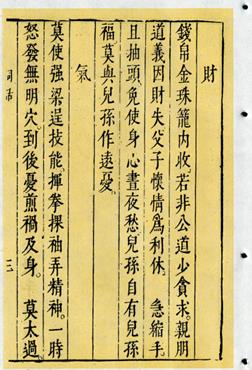 財
錢帛金珠籠內收。若非公道少貪求。親朋
道義因財失。父子懷情爲利休。 急縮手。
且抽頭。免使身心晝夜愁。兒孫自有兒孫
福。莫與兒孫作遠憂。
氣
莫使强梁逞技能。揮拳捰袖弄精神。一時
怒發無明穴。到後憂煎禍及身。 莫太過。